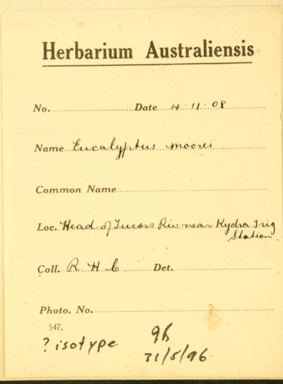 Herbarium Australiensis
No. Date 4.11.08
Name Eucalyptus moorei
Common Name
Loc. Head of Tuross River near Kydra Trig
Station.
Coll. R H C Det.
Photo. No.
547.
? isotype
31/5/96